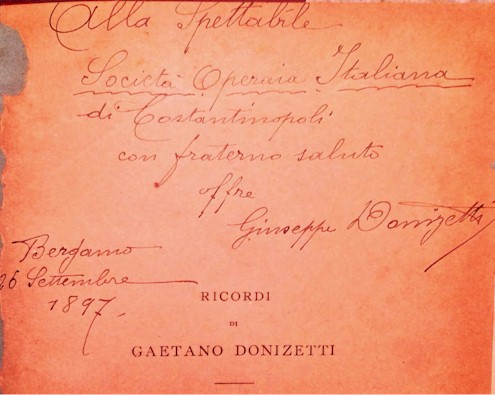 Alla Spettabile
Società Operaia Italiana
di Costantinopoli
con fraterno saluto
offre
Giuseppe Donizetti
Bergamo
26 Settembre
1897.
RICORDI
DI
GAETANO DONIZETTI